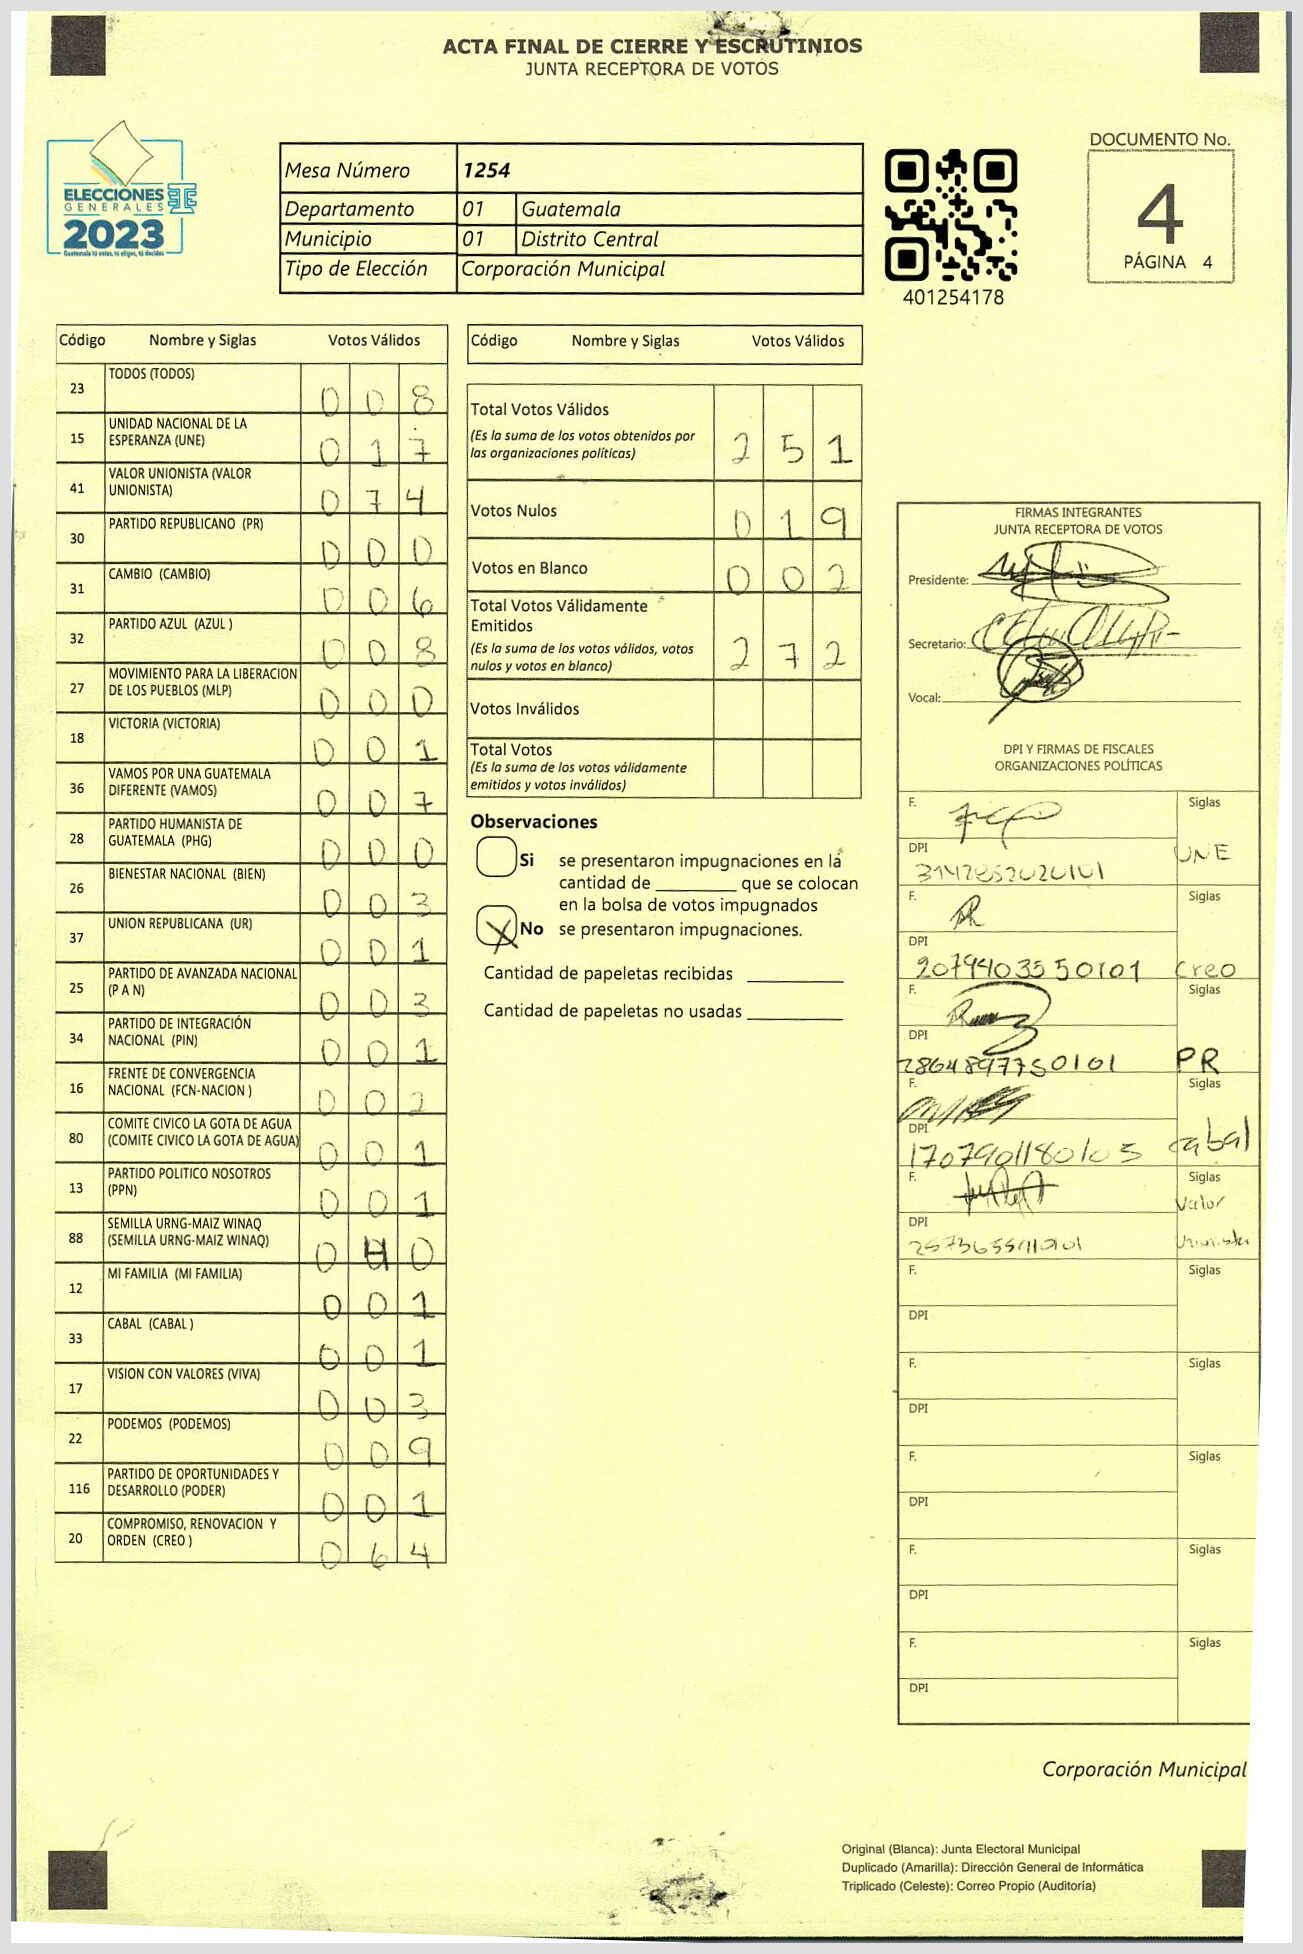 ACTA FINAL DE CIERRE Y ESCRUTINIOS
JUNTA RECEPTORA DE VOTOS
ELECCIONES
GENERALES
2023
Guatemala tú votas, tú eliges, tú decides
TSE
Mesa Número 1254
Departamento 01 Guatemala
Municipio 01 Distrito Central
Tipo de Elección Corporación Municipal
401254178
DOCUMENTO No.
4
PÁGINA 4
Código Nombre y Siglas Votos Válidos
23 TODOS (TODOS) 0 0 8
15 UNIDAD NACIONAL DE LA
ESPERANZA (UNE) 0 1 7
41 VALOR UNIONISTA (VALOR
UNIONISTA) 0 7 4
30 PARTIDO REPUBLICANO (PR) 0 0 0
31 CAMBIO (CAMBIO) 0 0 6
32 PARTIDO AZUL (AZUL ) 0 0 8
27 MOVIMIENTO PARA LA LIBERACION
DE LOS PUEBLOS (MLP) 0 0 0
18 VICTORIA (VICTORIA) 0 0 1
36 VAMOS POR UNA GUATEMALA
DIFERENTE (VAMOS) 0 0 7
28 PARTIDO HUMANISTA DE
GUATEMALA (PHG) 0 0 0
26 BIENESTAR NACIONAL (BIEN) 0 0 3
37 UNION REPUBLICANA (UR) 0 0 1
25 PARTIDO DE AVANZADA NACIONAL
(P A N) 0 0 3
34 PARTIDO DE INTEGRACIÓN
NACIONAL (PIN) 0 0 1
16 FRENTE DE CONVERGENCIA
NACIONAL (FCN-NACION ) 0 0 2
80 COMITE CIVICO LA GOTA DE AGUA
(COMITE CIVICO LA GOTA DE AGUA) 0 0 1
13 PARTIDO POLITICO NOSOTROS
(PPN) 0 0 1
88 SEMILLA URNG-MAIZ WINAQ
(SEMILLA URNG-MAIZ WINAQ) 0 4 0
12 MI FAMILIA (MI FAMILIA) 0 0 1
33 CABAL (CABAL ) 0 0 1
17 VISION CON VALORES (VIVA) 0 0 3
22 PODEMOS (PODEMOS) 0 0 9
116 PARTIDO DE OPORTUNIDADES Y
DESARROLLO (PODER) 0 0 1
20 COMPROMISO, RENOVACION Y
ORDEN (CREO ) 0 6 4
Código Nombre y Siglas Votos Válidos
Total Votos Válidos
(Es la suma de los votos obtenidos por
las organizaciones politicas) 2 5 1
Votos Nulos 0 1 9
Votos en Blanco 0 0 2
Total Votos Válidamente
Emitidos
(Es la suma de los votos válidos, votos
nulos y votos en blanco) 2 7 2
Votos Inválidos
Total Votos
(Es la suma de los votos válidamente
emitidos y votos inválidos)
Observaciones
Si se presentaron impugnaciones en la
cantidad de ________ que se colocan
en la bolsa de votos impugnados
X No se presentaron impugnaciones.
Cantidad de papeletas recibidas ________
Cantidad de papeletas no usadas ________
FIRMAS INTEGRANTES
JUNTA RECEPTORA DE VOTOS
Presidente:
Secretario:
Vocal:
DPI Y FIRMAS DE FISCALES
ORGANIZACIONES POLÍTICAS
F. Siglas
DPI UNE
F. Siglas
DPI
2079403550101 Creo
F. Siglas
DPI
2864897750101 PR
F. Siglas
DPI
1707901180105 cabal
F. Siglas
Valor
DPI
Unionista
F. Siglas
DPI
F. Siglas
DPI
F. Siglas
DPI
F. Siglas
DPI
F. Siglas
DPI
Corporación Municipal
Original (Blanca): Junta Electoral Municipal
Duplicado (Amarilla): Dirección General de Informática
Triplicado (Celeste): Correo Propio (Auditoría)